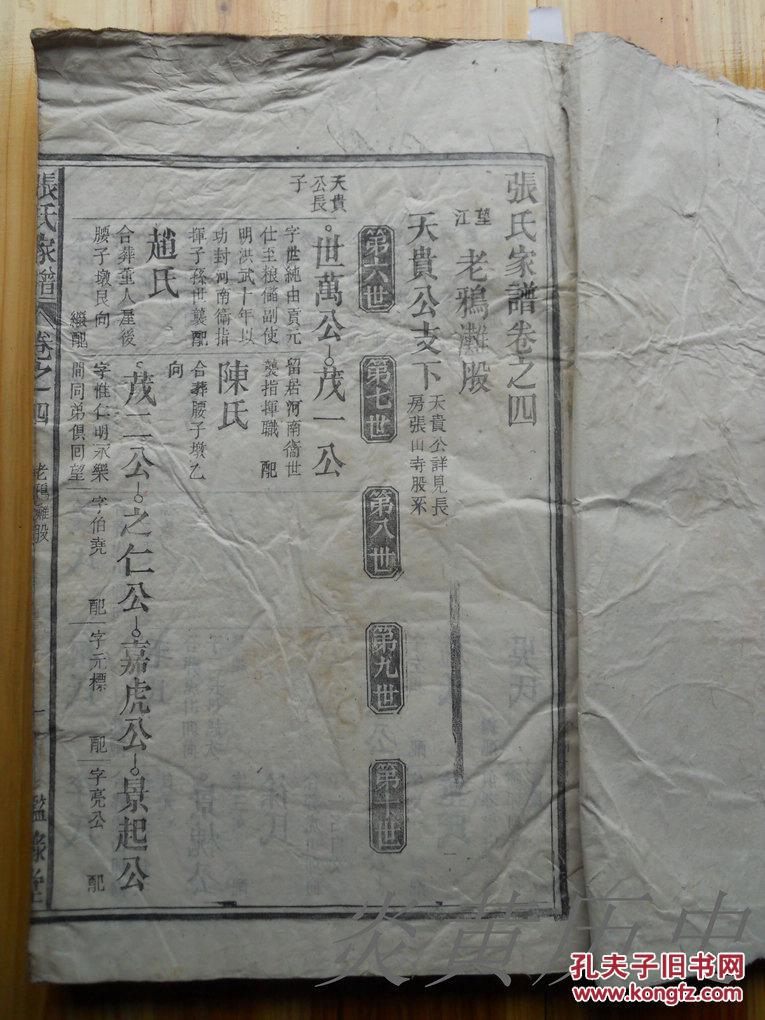 張氏家譜卷之四
望江 老鴉灘股
天貴公支下 天貴公詳見長房張山寺股系
第六世 第七世 第八世 第九世 第十世
天貴公長子
世萬公 茂一公
字世純由貢元
仕至根儲副使
明洪武十年以
功封河南衛指
揮子孫世襲配
留居河南衛世
襲指揮職 配
陳氏
合葬腰子墩乙
向
趙氏
合葬董人屋後
腰子墩艮向
繼配
茂二公 之仁公 嘉虎公 景起公
字惟仁明永樂
間同弟俱回望
字伯堯 配
字元標 配
字亮公 配
張氏家譜 卷之四 老鴉灘股 一 鑑錄堂
炎黄历史
孔夫子旧书网
www.kongfz.com